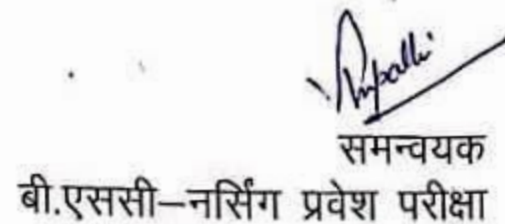 समन्वयक
बी.एससी–नर्सिंग प्रवेश परीक्षा